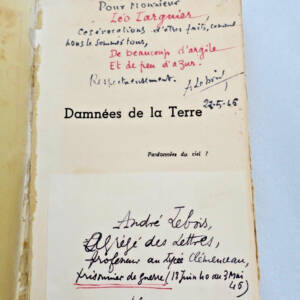 Pour Monsieur
Léo Larguier
Ces évocations d'êtres faits, comme
nous le sommes tous,
De beaucoup d'argile
Et de peu d'azur.
Respectueusement.
A. Lebois
22-5-46
Damnées de la Terre
Pardonnées du ciel ?
André Lebois,
Agrégé des Lettres,
Professeur au Lycée Clémenceau,
prisonnier de guerre (18 Juin 40 au 3 Mai
45)